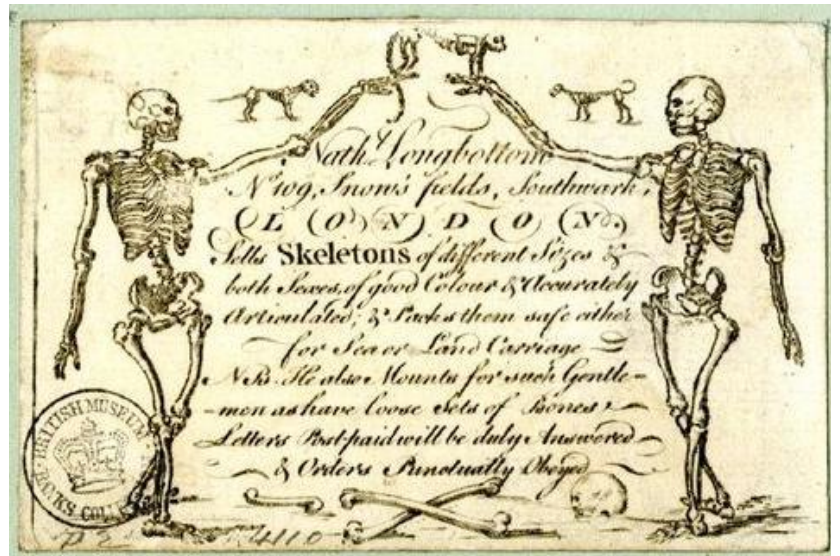 Nathl. Longbottom
No. 109, Snow's fields, Southwark,
LONDON.
Sells Skeletons of different Sizes &
both Sexes, of good Colour & Accurately
Articulated; & Packs them safe either
for Sea or Land Carriage
N.B. He also Mounts for such Gentle-
-men as have loose Sets of Bones
Letters Post-paid will be duly Answered
& Orders Punctually Obeyed
BRITISH MUSEUM
BANKS COLLE